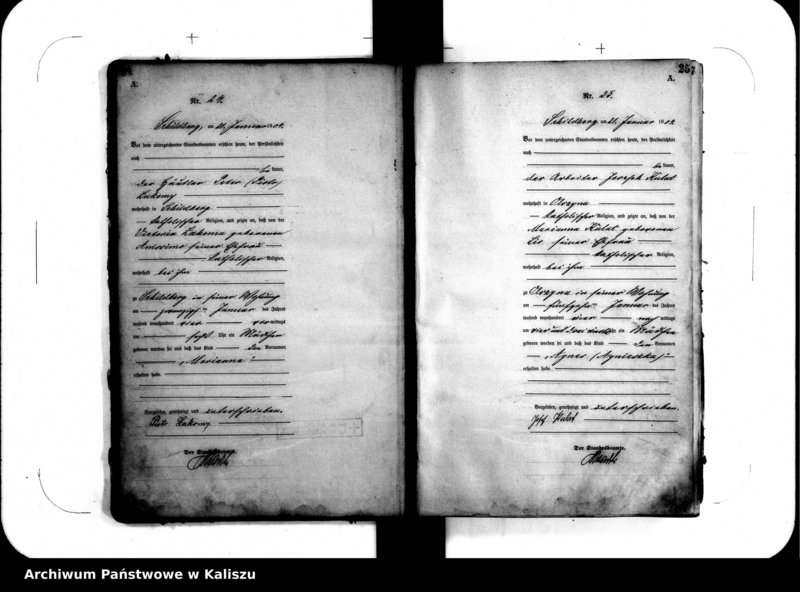 A.
Nr. 24.
Schildberg, am 21. Januar 1904.
Vor dem unterzeichneten Standesbeamten erschien heute, der Persönlichkeit
nach
kannt,
der Häusler Peter (Piotr)
Lukomy
wohnhaft in Schildberg
katholischer Religion, und zeigte an, daß von der
Victoria Lukomy geborenen
seiner Ehefrau
katholischer Religion,
wohnhaft bei ihm
zu Schildberg in seiner Wohnung
am zwanzigsten Januar des Jahres
tausend neunhundert vier vormittags
um sechs Uhr ein Mädchen
geboren worden sei und daß das Kind den Vornamen
„Marianna"
erhalten habe.
Vorgelesen, genehmigt und unterschrieben.
Piotr Lukomy
Der Standesbeamte.
257
A.
Nr. 25.
Schildberg, am 21. Januar 1904.
Vor dem unterzeichneten Standesbeamten erschien heute, der Persönlichkeit
nach
kannt,
der Arbeiter Joseph Kulat
wohnhaft in
katholischer Religion, und zeigte an, daß von der
Marianna Kulat geborenen
seiner Ehefrau
katholischer Religion,
wohnhaft bei ihm
zu in seiner Wohnung
am fünfzehnten Januar des Jahres
tausend neunhundert vier nachmittags
um ein Mädchen
geboren worden sei und daß das Kind den Vornamen
„Agnes (Agnieszka)"
erhalten habe.
Vorgelesen, genehmigt und unterschrieben.
Kulat
Der Standesbeamte.
Archiwum Państwowe w Kaliszu